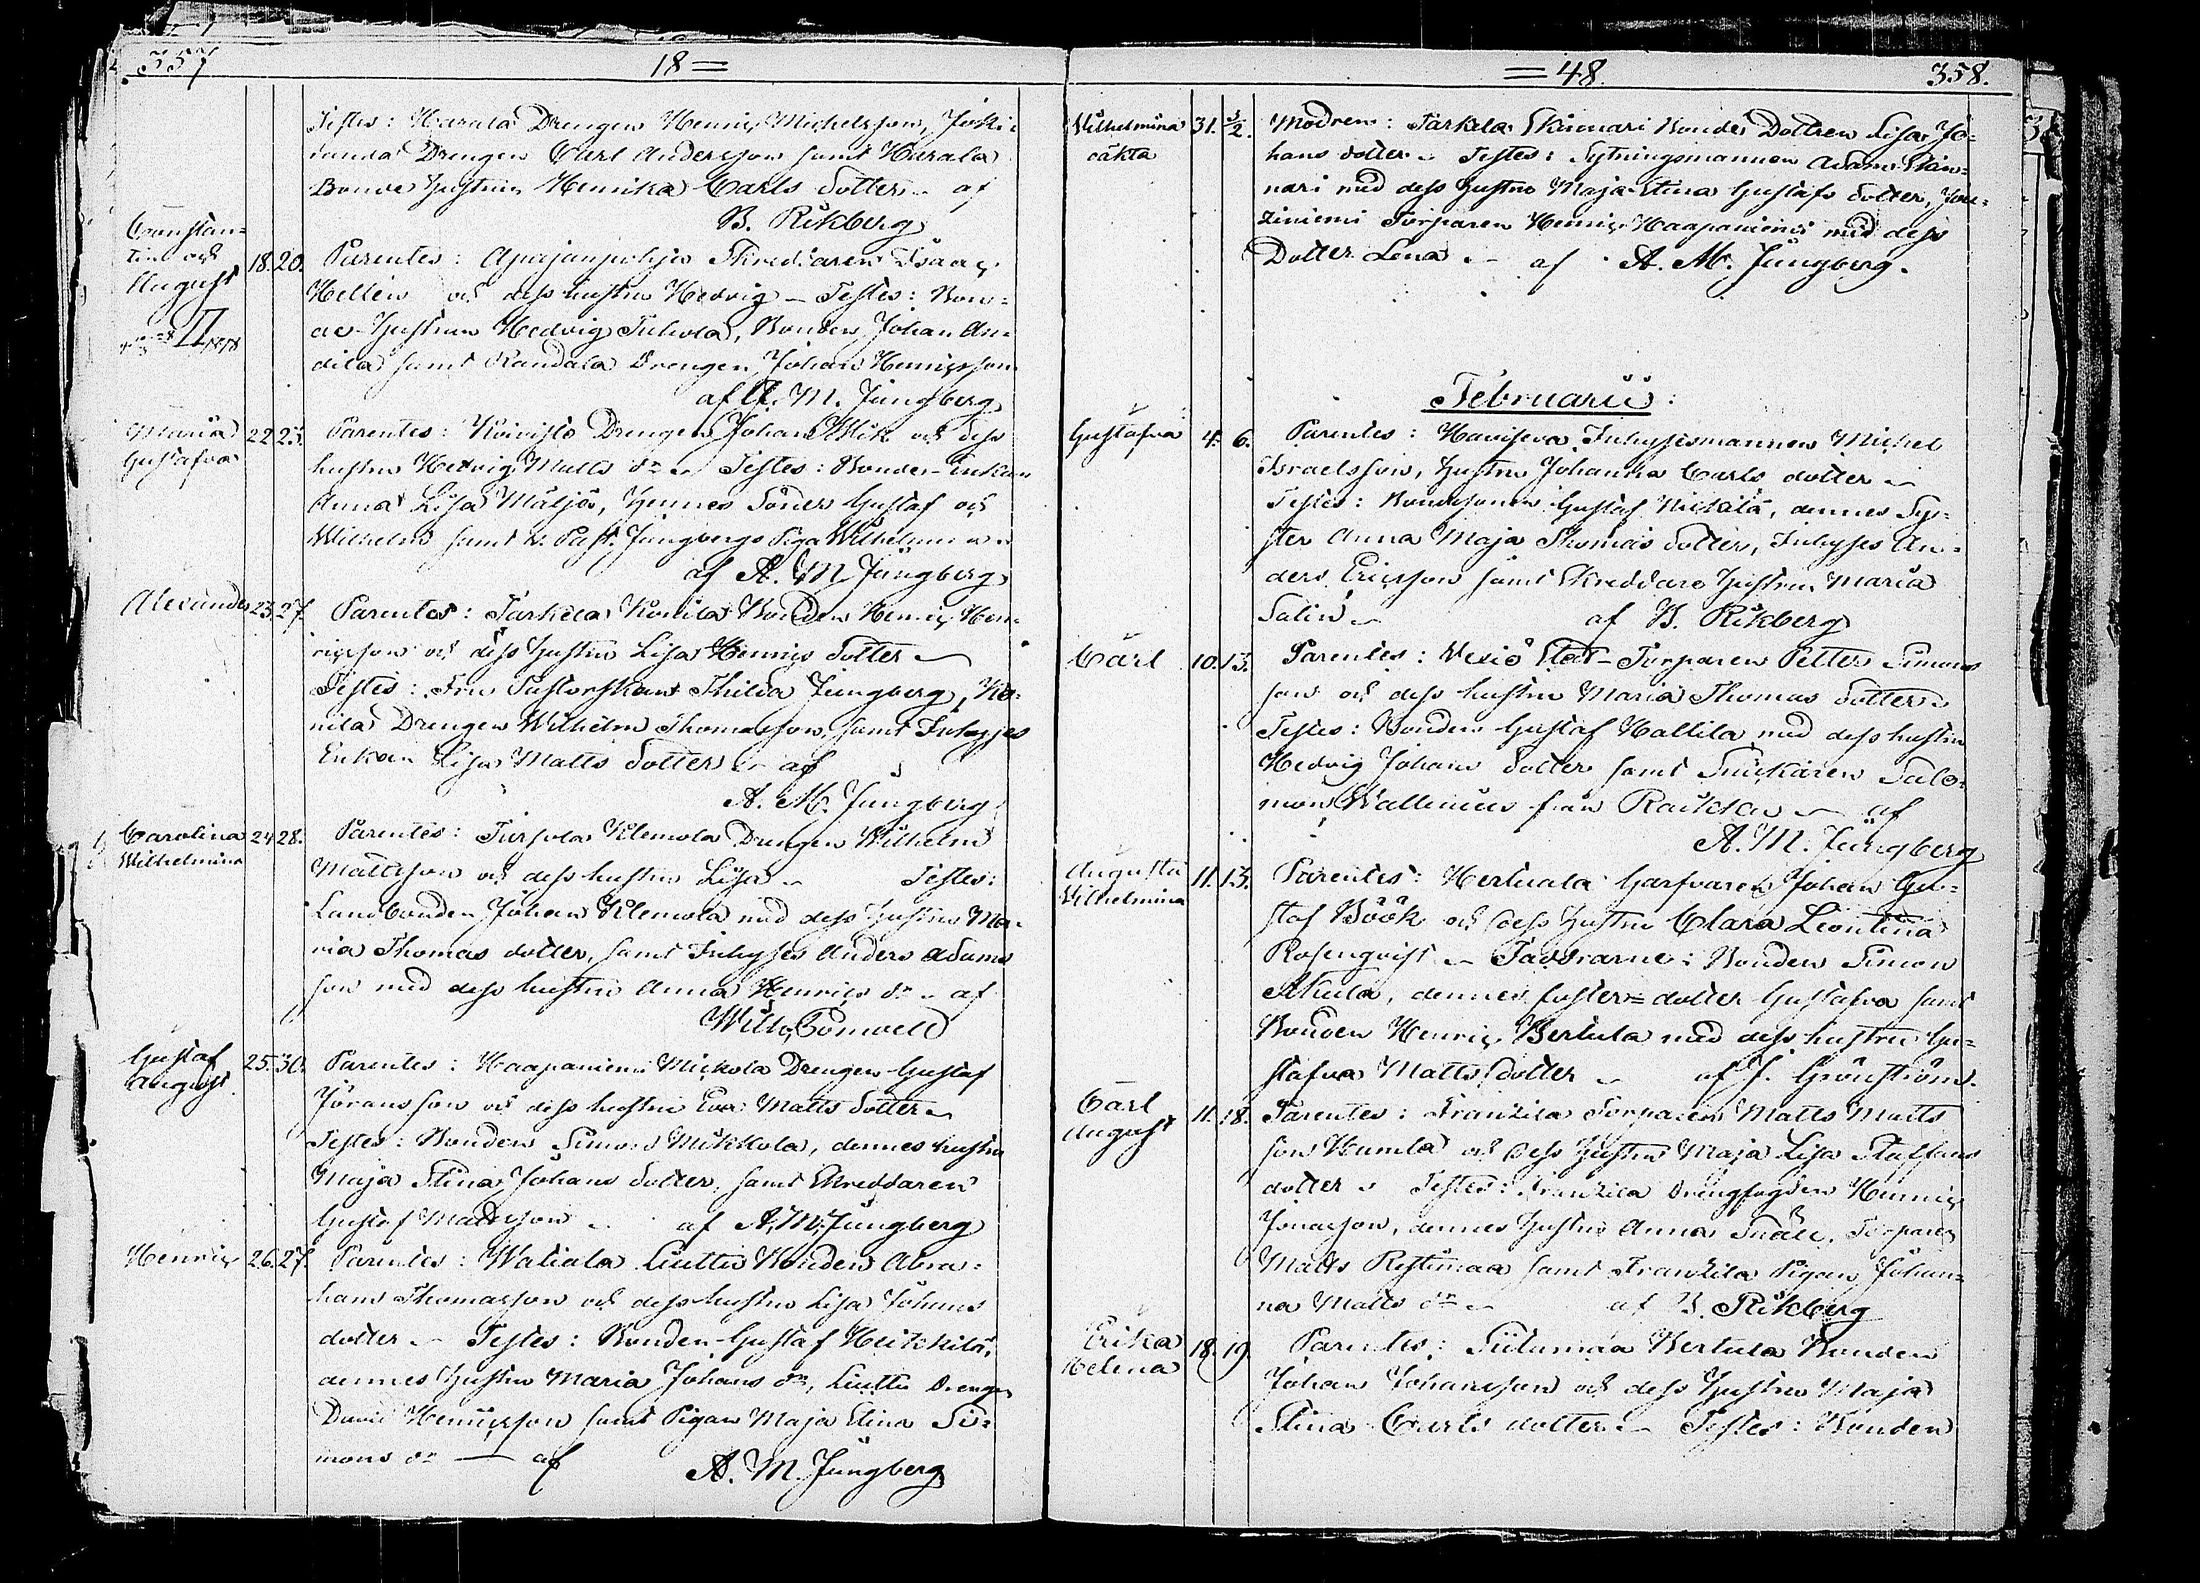 357
18=
Testes: Harala Drengen Henric Michelsson, Joki-
Drengen Carl Andersson samt Harala
Bonde Hustrun Henrika Carls dotter af
B. Rikberg
Constan-
tin och
August
18. 20. Parentes: Apajanpohja Skreddaren Isaac
Hellen och dess hustru Hedvig – Testes: Bon-
de Hustrun Hedvig Tuhola, Bonden Johan An-
dila samt Randala Drengen Johan Henricsson
af A. M. Jungberg
Maria
Gustafva
22 25. Parentes: Koivisto Drengen Johan och dess
hustru Hedvig Matts dr Testes: Bonde-Enkan
Anna Lisa Mäljös, hennes Söner Gustaf och
Wilhelm samt V. Past. Jungbergs Piga Wilhelmina
af A. M. Jungberg
Alexander 23. 27. Parentes: Sarkela Konila Bonden Henric Hen-
ricsson och dess Hustru Lisa Henrics dotter
Testes: Fru Pastorskan Thilda Jungberg, Ko-
nila Drengen Wilhelm Thomasson, samt Inhyses
Enkan Lisa Matts dotter af
A. M. Jungberg
Carolina
Wilhelmina
24 28. Parentes: Tursola Klemola Drengen Wilhelm
Mattsson och dess hustru Lisa Testes:
Landbonden Johan Klemola med dess Hustru Ma-
ria Thomas dotter, samt Inhyses Anders Adams
son med dess hustru Anna Henrics dr af
Wilh. Törnveld
Gustaf
August
25. 30. Parentes: Haapaniemi Mickola Drengen Gustaf
Jöransson och dess hustru Eva Matts dotter
Testes: Bonden Simon Mikkola, dennes hustru
Maja Stina Johans dotter, samt Skreddaren
Gustaf Mattsson af A. M. Jungberg
Henric 26. 27. Parentes: Waliala Liuttu Bonden Abra-
ham Thomasson och dess hustru Lisa Johans
dotter Testes: Bonden Gustaf Heikkilä,
dennes Hustru Maria Johans dr, Liuttu Drengen
David Henricsson samt Pigan Maja Stina Si-
mons dr — af A. M. Jungberg
=48.
358.
Wilhelmina
oäkta
31. 5/2. Modren: Sarkela Skinnari Bonde Dottren Lisa Jo-
hans dotter Testes: Sytningsmannen Adam Skin-
nari med dess Hustru Maja Stina Gustafs dotter, Jou-
ziniemi Torparen Henric Haapaniemi med dess
Dotter Lena af A. M. Jungberg.
Februarii:
Gustafva 4. 6. Parentes: Inhysesmannen Michel
Israelsson, Hustru Johanna Carls dotter
Testes: Bondesonen Gustaf Nickilä, dennes Sy-
ster Anna Maja Thomas dotter, Inhyses An-
ders Ericsson samt Skreddare Hustrun Maria
Salin af B. Rikberg
Carl 10. 13. Parentes: Vesiö Torparen Petter Simons
son och dess hustru Maria Thomas dotter
Testes: Bonden Gustaf Hallila med dess hustru
Hedvig Johans dotter samt Snickaren Salo-
mon Wallenius från af
A. M. Jungberg
Augusta
Wilhelmina
11. 13. Parentes: Hertuala Garfvaren Johan Gu-
staf Böök och dess Hustru Clara Leontina
Rosenqvist Faddrarne: Bonden Simon
Skula, dennes foster=dotter Gustafva samt
Bonden Henric Bertula med dess hustru Gu-
stafva Matts dotter af J. Grönström.
Carl
August
11. 18. Parentes: Frantzila Torparen Matts Matts
son Humla och dess Hustru Maja Lisa Staffans
dotter Testes: Frantzila Drengfogden Henric
Jonasson, dennes Hustru Anna Snäll, Torparen
Matts Restimaa samt Frantzila Pigan Johan-
na Matts dr af B. Rikberg
Erika
Helena
18. 19. Parentes: Siilumäa Bertula Bonden
Johan Johansson och dess Hustru Maja
Stina Carls dotter Testes: Bonden